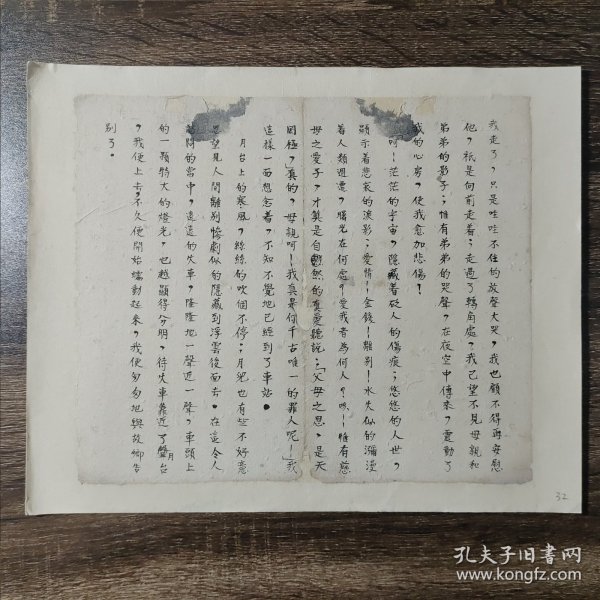 我走了，只是哇哇不住的放聲大哭，我也顧不得再安慰
他，祇是向前走着；走過了轉角處，我已望不見母親和
弟弟的影子；惟有弟弟的哭聲，在夜空中傳來，震動了
我的心房，使我愈加悲傷！
呵！茫茫的宇宙，隱藏着砍人的傷痕；悠悠的人世，
顯示着悲哀的淚影；愛情！金錢！離別！水失似的瀰漫
着人類週遭，曙光在何處？愛我者為何人？咳！惟有慈
母之愛子，才算是自然的真愛聽說：「父母之恩，昊天
罔極，」真的，母親呵！我真是個千古唯一的罪人呢！」我
這樣一面想念着，不知不覺地已經到了車站。
月台上的寒風，絲絲的吹個不停；月兒也有些不好意
思望見人間離別慘劇似的隱藏到浮雲後面去。在這令人
的當中，遠遠的火車，隆隆地一聲近一聲，車頭上
的一顆特大的燈光，也越顯得分明，待火車靠近了月台
，我便上去，不久便開始蠕動起來，我便匆匆地與故鄉告
別了。
32
孔夫子旧书网
www.kongfz.com